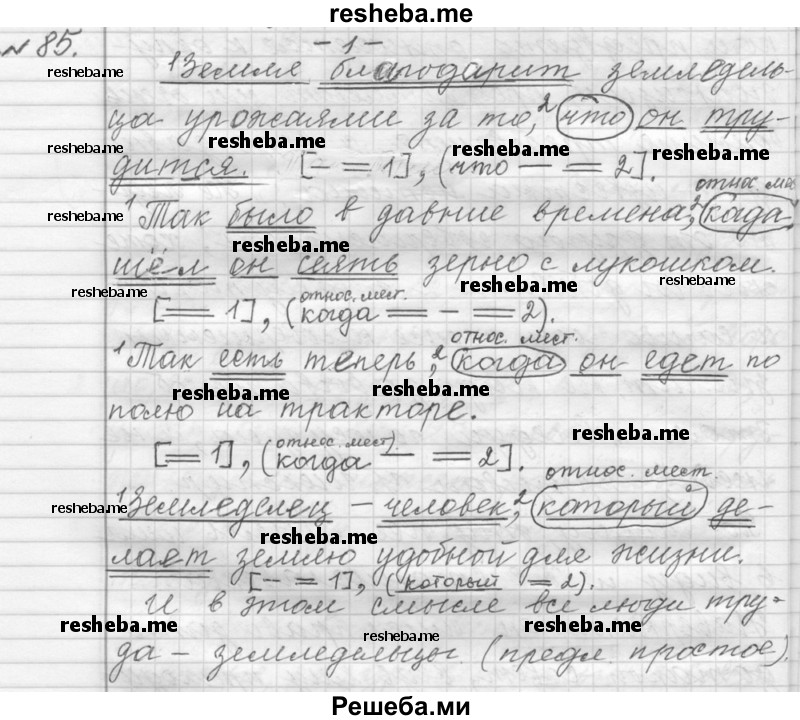 resheba.me
№ 85.
- 1 -
¹Земля благодарит земледель-
resheba.me
ца урожаями за то, ²что он тру-
resheba.me resheba.me resheba.me
дится. [— = 1], (что — = 2].
относ. мес
¹Так было в давние времена, ²когда
resheba.me resheba.me
шёл он сеять зерно с лукошком.
resheba.me resheba.me resheba.me
[= 1], (относ. мест. когда = - = 2).
относ. мест.
¹Так есть теперь, ²когда он едет по
resheba.me resheba.me
полю на тракторе.
resheba.me
[= 1], (относ. мест). когда — = 2].
относ. мест.
¹Земледелец – человек, ²который де-
resheba.me
лает землю удобной для жизни.
resheba.me
[— = 1], (который = 2).
И в этом смысле все люди тру-
resheba.me resheba.me resheba.me
да – земледельцы. (предл. простое).
Решеба.ми